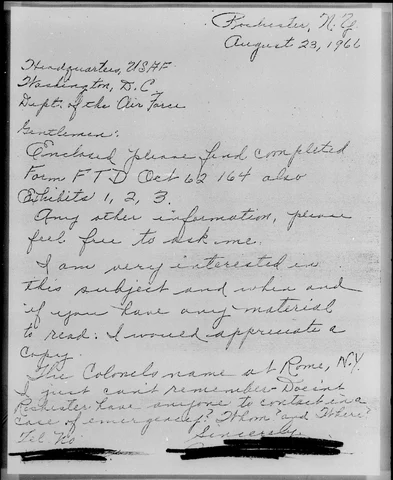 Rochester, N.Y.
August 23, 1966
Headquarters, USAF
Washington, D.C
Dept. of the Air Force
Gentlemen:
Enclosed please find completed
Form FTD Oct 62 164 also
Exhibits 1, 2, 3.
Any other information, please
feel free to ask me.
I am very interested in
this subject and when and
if you have any material
to read. I would appreciate a
copy.
The Colonels name at Rome, N.Y.
I just can't remember - Doesnt
Rochester have anyone to contact in a
case of emergency? Whom? and Where?
Tel. No
Sincerely